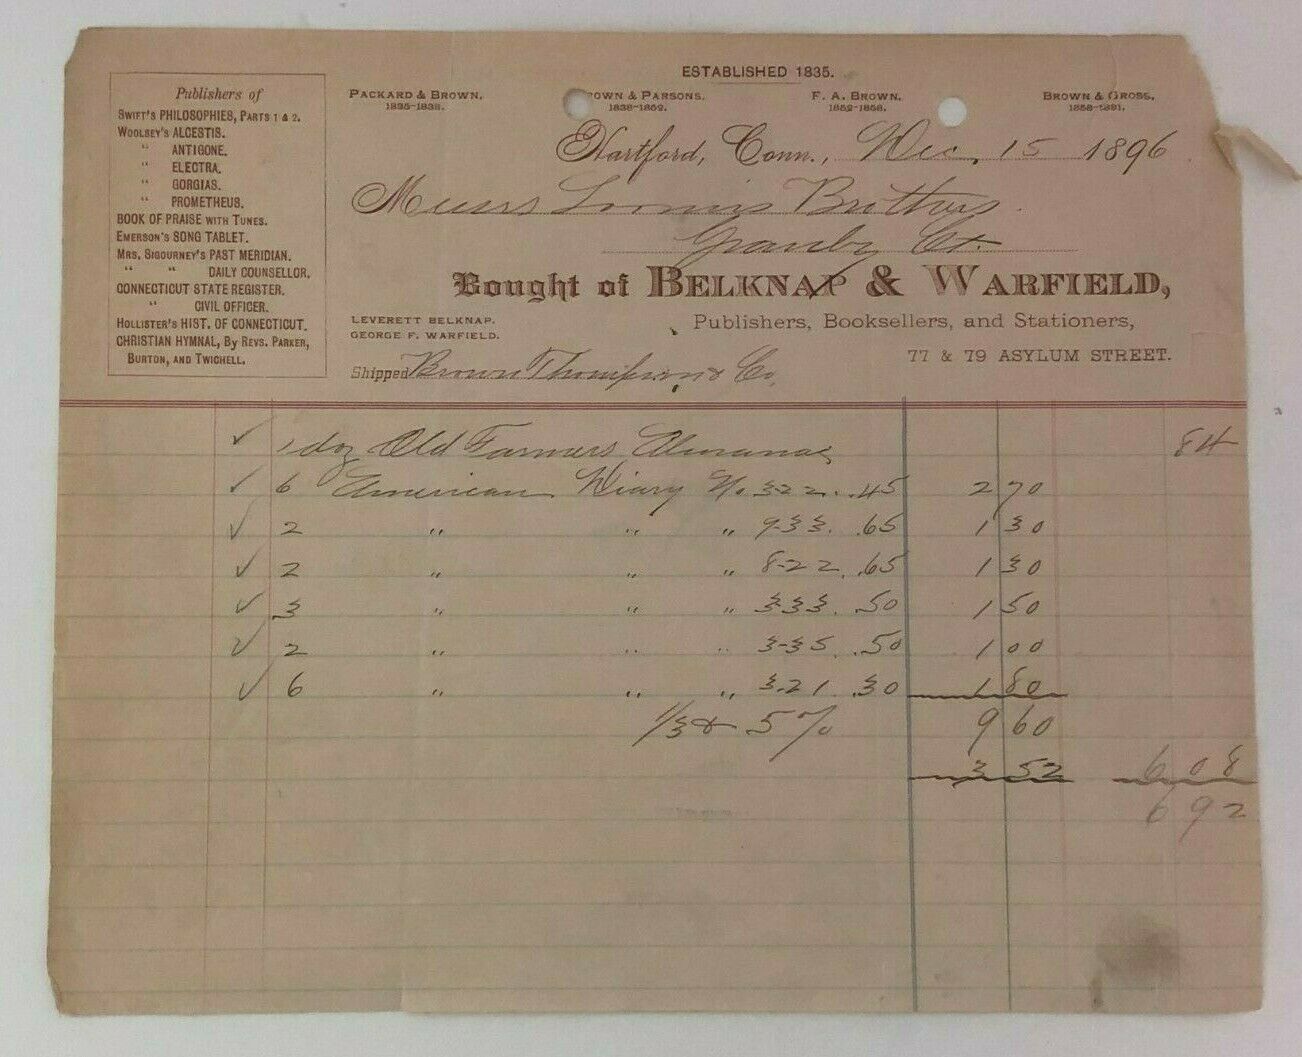 ESTABLISHED 1835.
PACKARD & BROWN, 1835-1838.
BROWN & PARSONS, 1838-1852.
F. A. BROWN, 1852-1858.
BROWN & GROSS, 1858-1891.
Publishers of
SWIFT'S PHILOSOPHIES, PARTS 1 & 2.
WOOLSEY'S ALCESTIS.
" ANTIGONE.
" ELECTRA.
" GORGIAS.
" PROMETHEUS.
BOOK OF PRAISE WITH TUNES.
EMERSON'S SONG TABLET.
MRS. SIGOURNEY'S PAST MERIDIAN.
" " DAILY COUNSELLOR.
CONNECTICUT STATE REGISTER.
" CIVIL OFFICER.
HOLLISTER'S HIST. OF CONNECTICUT.
CHRISTIAN HYMNAL, BY REVS. PARKER,
BURTON, AND TWICHELL.
Hartford, Conn., Dec. 15 1896
Messrs Loomis Brothers
Granby Ct.
Bought of BELKNAP & WARFIELD,
LEVERETT BELKNAP.
GEORGE F. WARFIELD.
Publishers, Booksellers, and Stationers,
77 & 79 ASYLUM STREET.
Shipped Brown Thompson & Co.
✓ 1 doz Old Farmers Almanac 84
✓ 6 American Diary No 322. .45 2 70
✓ 2 " " " 933. .65 1 30
✓ 2 " " " 822. .65 1 30
✓ 3 " " " 333. .50 1 50
✓ 2 " " " 335. .50 1 00
✓ 6 " " " 321 .30 1 80
1/3 & 5% 9 60
3 52 6 08
6 92